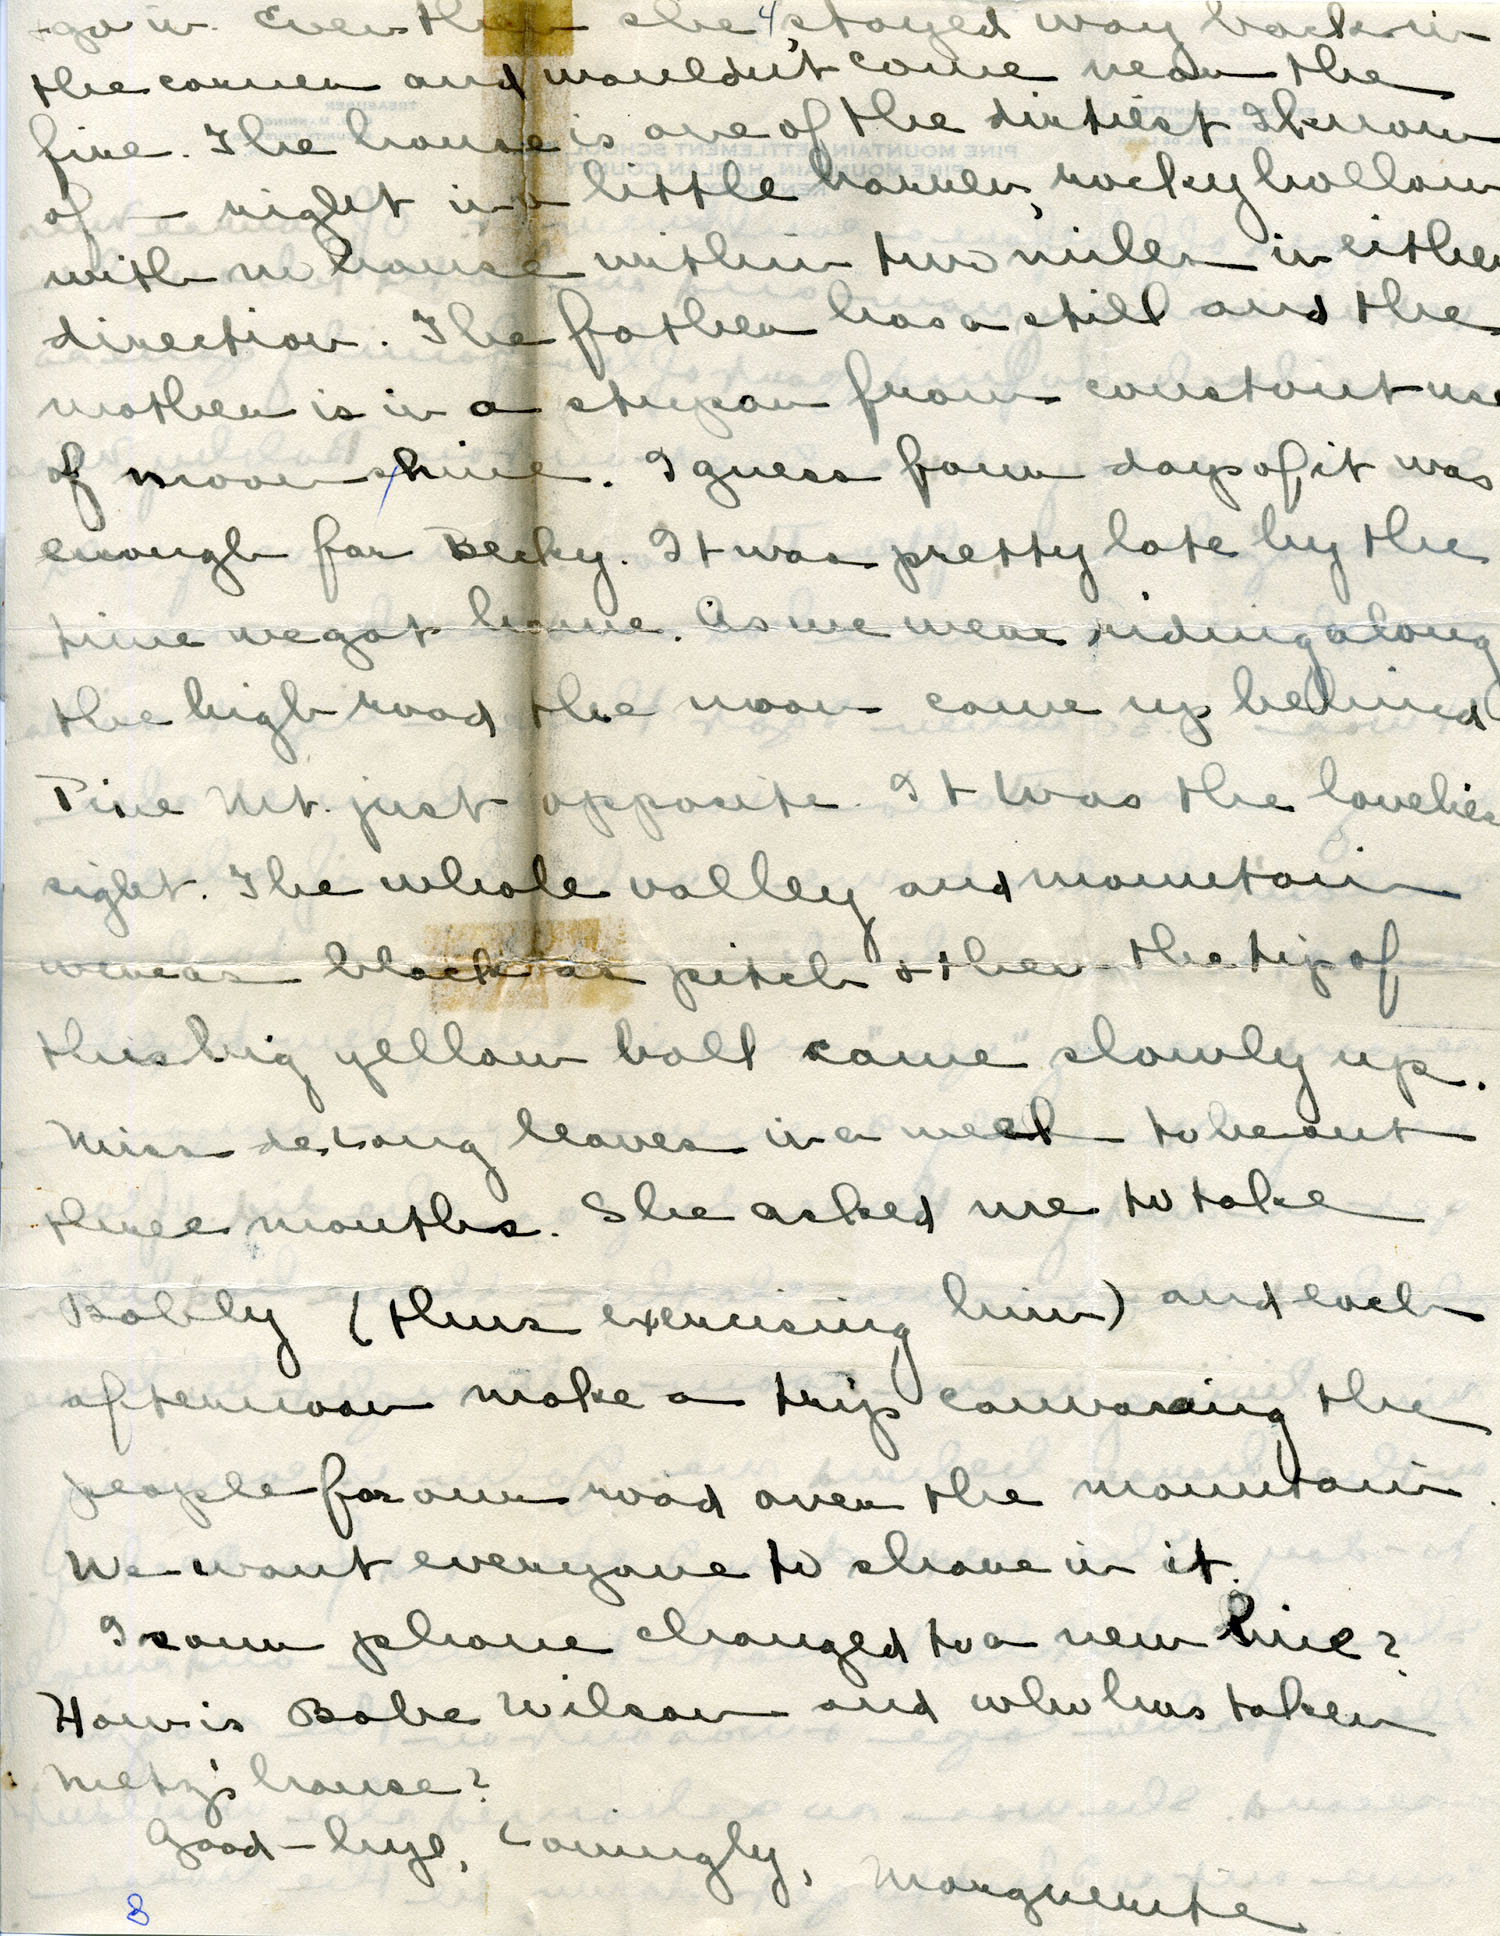 go in. Even then she 4, stayed way back in
the corner and wouldn't come near the
fire. The house is one of the dirtiest I know
of – right in a little narrow, rocky hollow
with no house within two miles in either
direction. The father has a still and the
mother is in a stupor from constant use
of moonshine. I guess four days of it was
enough for Becky. It was pretty late by the
time we got home. As we were riding along
the high road the moon came up behind
Pine Mt. just opposite. It was the lovelies
sight. The whole valley and mountain
were as black as pitch & then the tip of
this big yellow ball "came" slowly up.
Miss de Long leaves in a week to be out
three months. She asked me to take
Bobby (thus exercising him) and each
afternoon make a trip canvasing the
people for our road over the mountain.
We want everyone to share in it.
Is our phone changed to a new line?
How is Babe Wilson and who has taken
Metz's house?
Good-bye, Lovingly, Marguerite
8
TREASURER
PINE MOUNTAIN SETTLEMENT SCHOOL
PINE MOUNTAIN, HARLAN COUNTY